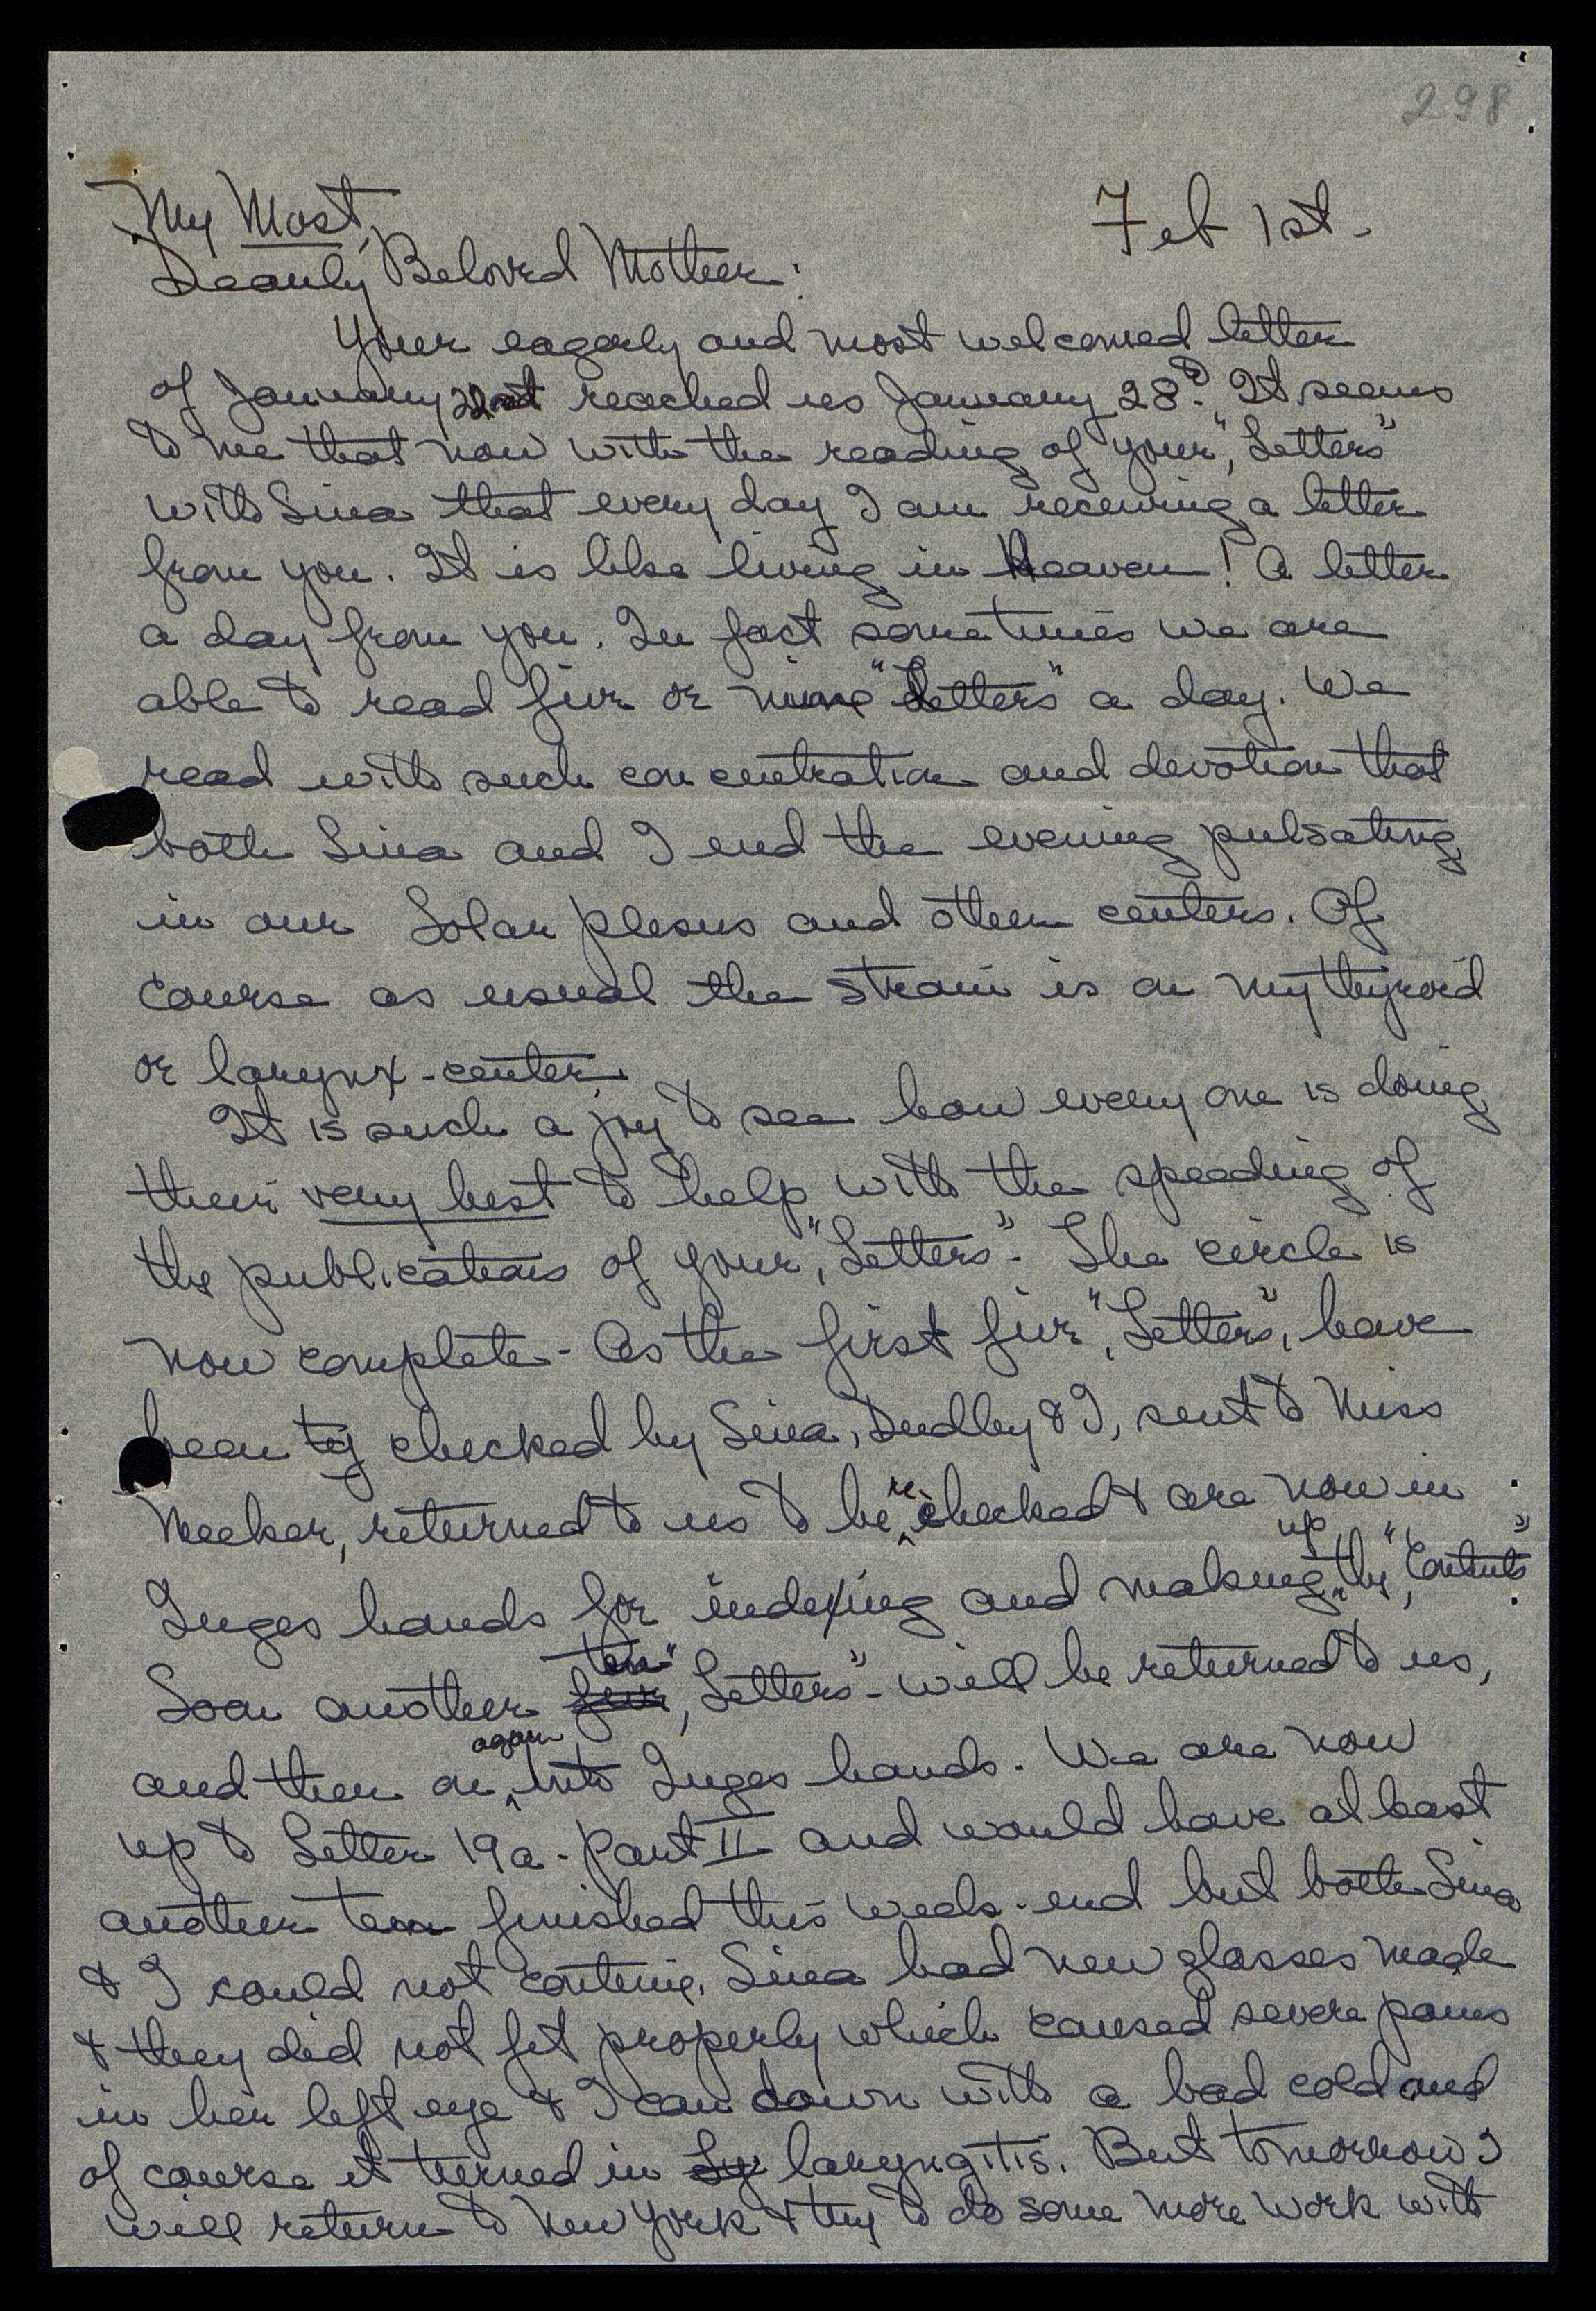 298
Feb 1st.
My Most,
Dearly Beloved Mother:
Your eagerly and most welcomed letter
of January 22nd reached us January 28th. It seems
to me that now with the reading of your "Letters"
with Sina that every day I am receiving a letter
from you. It is like living in Heaven! A letter
a day from you. In fact sometimes we are
able to read five or more "Letters" a day. We
read with such concentration and devotion that
both Sina and I end the evening pulsating
in our Solar plesus and other centers. Of
course as usual the strain is on my thyroid
or larynx-center.
It is such a joy to see how every one is doing
their very best to help with the speeding of
the publications of your "Letters". The circle is
now complete - As the first five "Letters", have
been checked by Sina, Dudley & I, sent to Miss
Meeker, returned to us to be re checked & are now in
Inges hands for indexing and making up the "Contents"
Soon another five ten "Letters" - will be returned to us,
and then on again into Inges hands. We are now
up to Letter 19a - Part II and would have at least
another ten finished this week-end but both Sina
& I could not continue. Sina had new glasses made
& they did not fit properly which caused severe pains
in her left eye & I can down with a bad cold and
of course it turned in Ly laryngitis. But tomorrow I
will return to New York & try to do some more work with